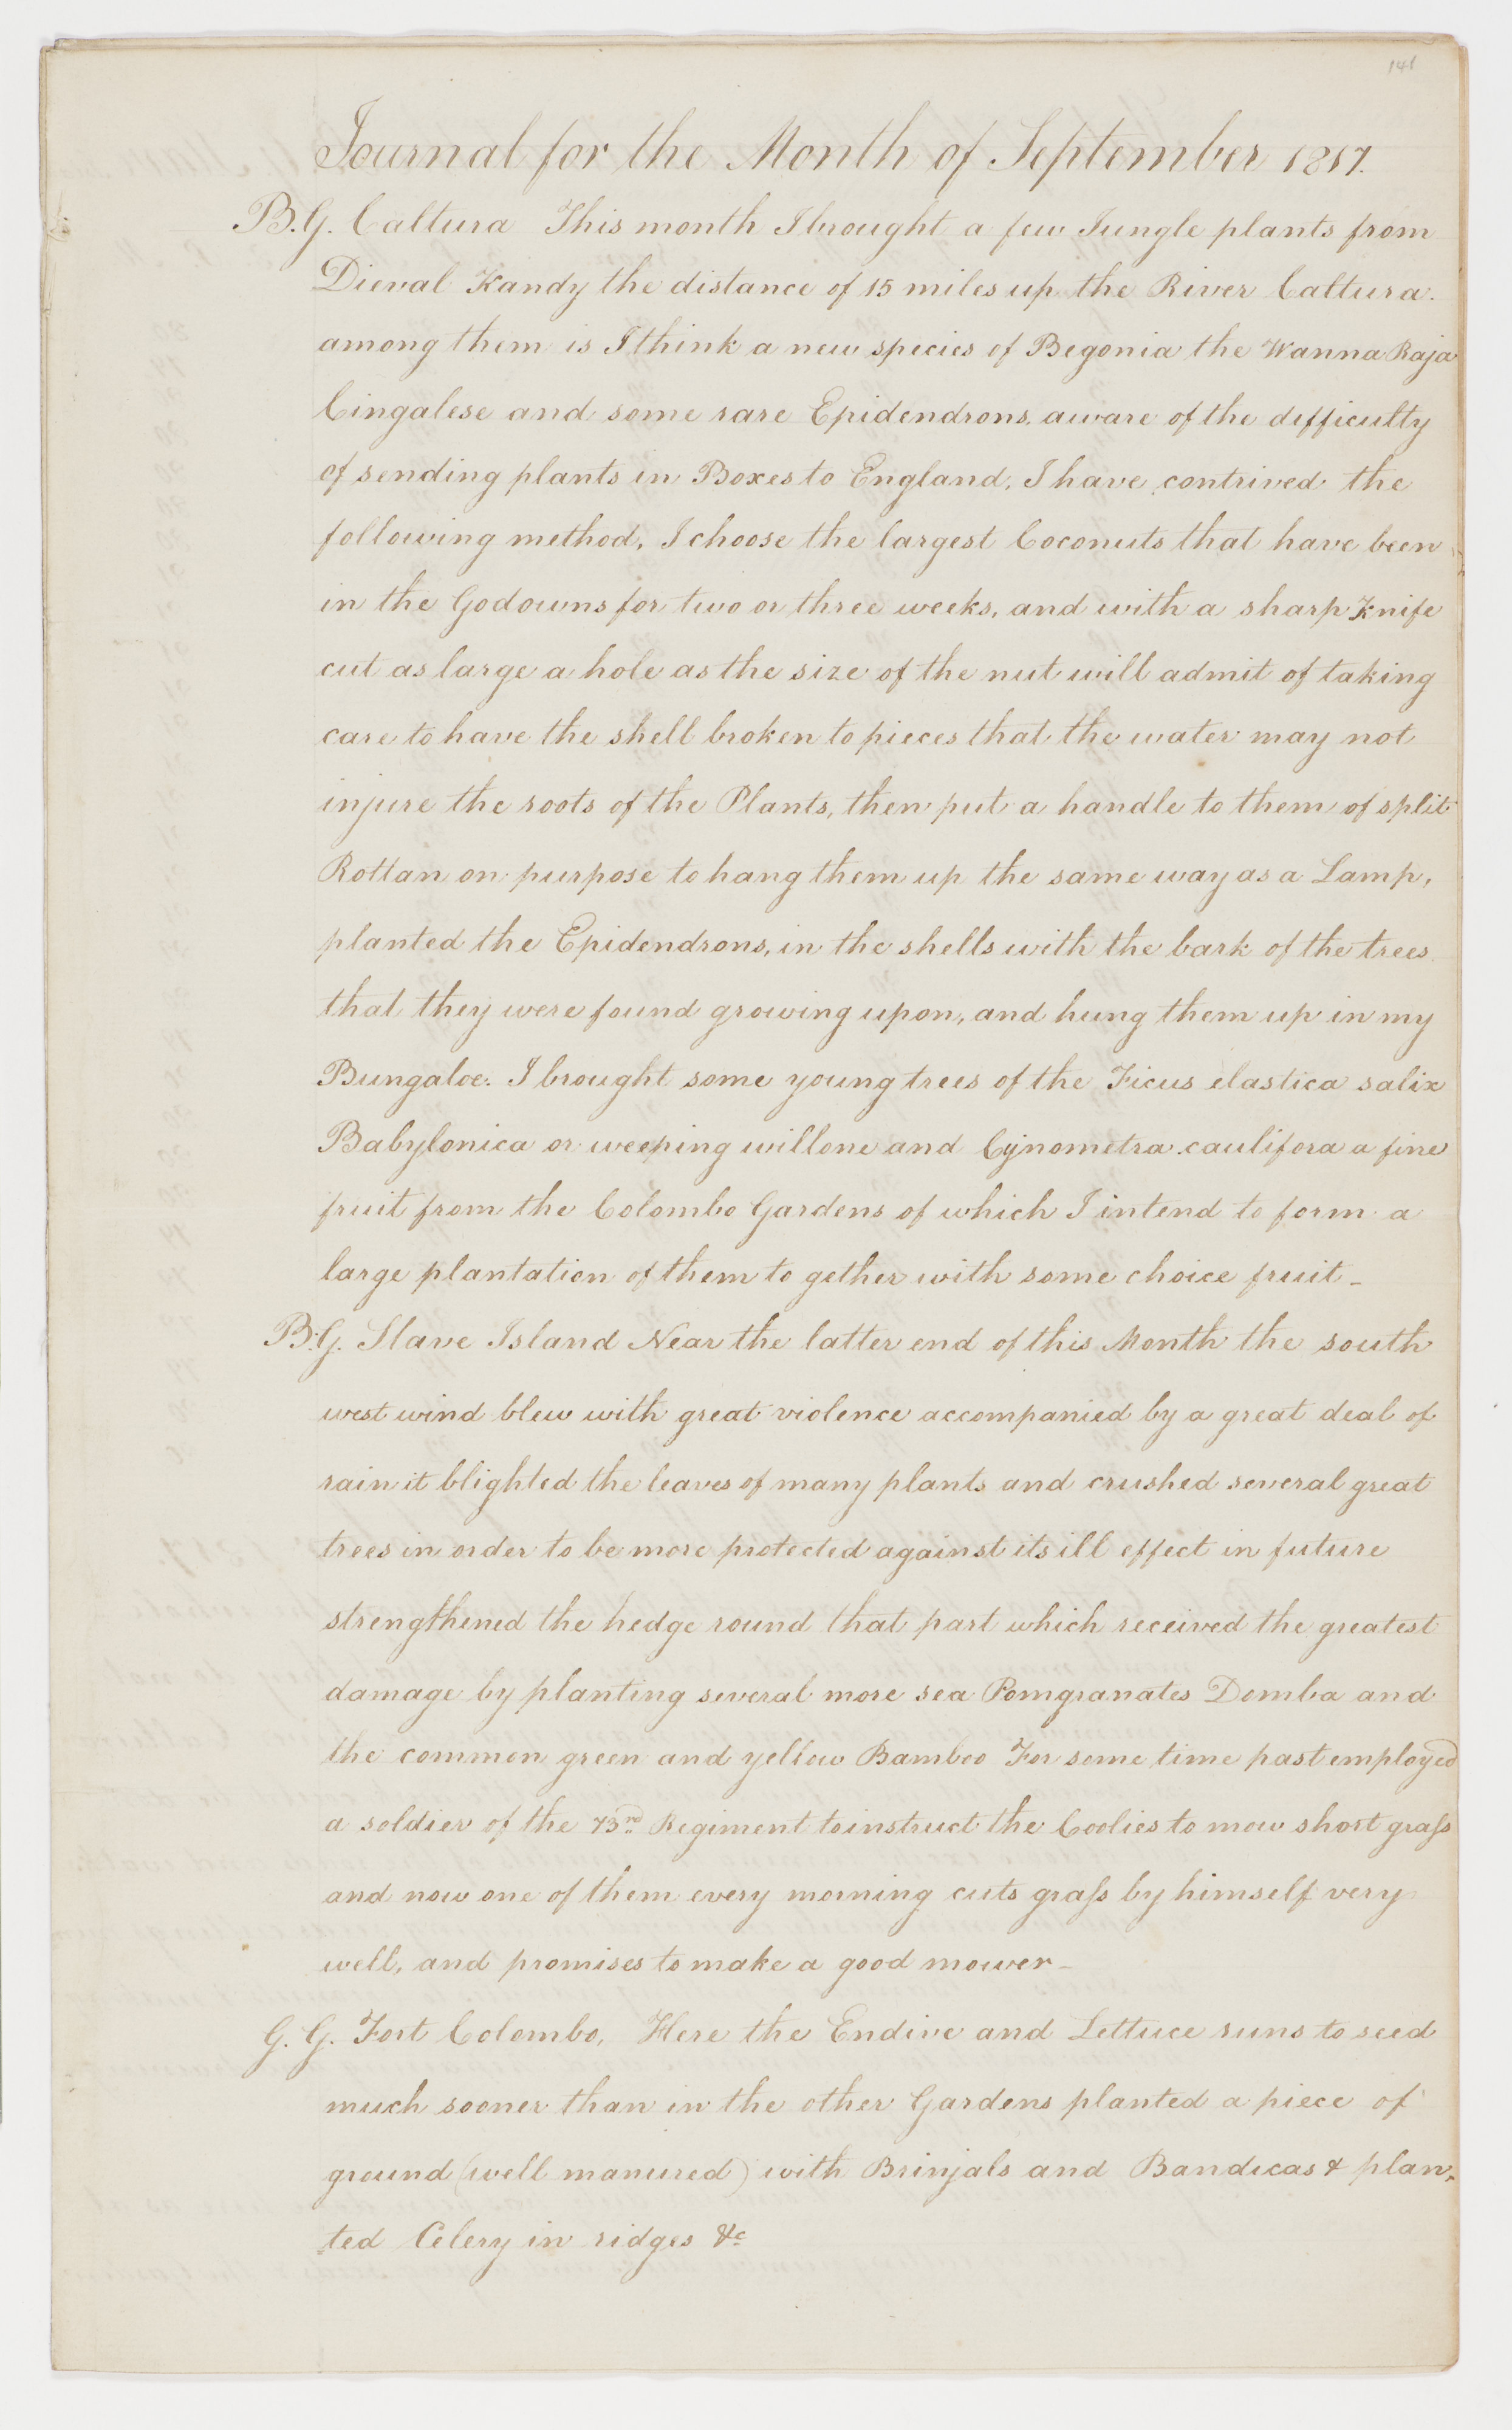 141
Journal for the Month of September 1817.
B.G. Caltura This month I brought a few Jungle plants from
Dieval Kandy the distance of 15 miles up the River Caltura.
among them is I think a new species of Begonia the Wanna Raja
Cingalese and some rare Epidendrons, aware of the difficulty
of sending plants in Boxes to England, I have contrived the
following method, I choose the largest Coconuts that have been
in the Godowns for two or three weeks, and with a sharp Knife
cut as large a hole as the size of the nut will admit of taking
care to have the shell broken to pieces that the water may not
injure the roots of the Plants, then put a handle to them of split
Rottan on purpose to hang them up the same way as a Lamp,
planted the Epidendrons, in the shells with the bark of the trees
that they were found growing upon, and hung them up in my
Bungaloe. I brought some young trees of the Ficus elastica salix
Babylonica or weeping willone and Cynometra caulifora a fine
fruit from the Colombo Gardens of which I intend to form a
large plantation of them to gether with some choice fruit_
B.G. Slave Island Near the latter end of this Month the south
west wind blew with great violence accompanied by a great deal of
rain it blighted the leaves of many plants and crushed several great
trees in order to be more protected against its ill effect in future
strengthened the hedge round that part which received the greatest
damage by planting several more sea Pomgranates Domba and
the common green and yellow Bamboo For some time past employed
a soldier of the 73rd Regiment to instruct the Coolies to mow short grass
and now one of them every morning cuts grass by himself very
well, and promises to make a good mower_
G. G. Fort Colombo, Here the Endive and Lettuce runs to seed
much sooner than in the other Gardens planted a piece of
ground (well manured) with Brinjals and Bandicas & plan-
ted Celery in ridges &c